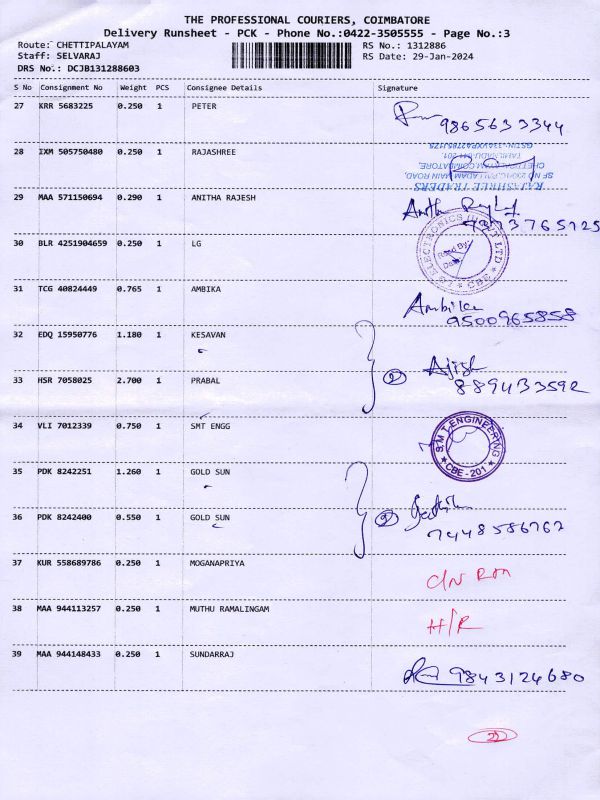 THE PROFESSIONAL COURIERS, COIMBATORE
Delivery Runsheet - PCK - Phone No.:0422-3505555 - Page No.:3
Route: CHETTIPALAYAM RS No.: 1312886
Staff: SELVARAJ RS Date: 29-Jan-2024
DRS No.: DCJB131288603
S No Consignment No Weight PCS Consignee Details Signature
27 KRR 5683225 0.250 1 PETER
9865633344
28 IXM 505750480 0.250 1 RAJASHREE
RAJASHREE TRADERS
29 MAA 571150694 0.290 1 ANITHA RAJESH
30 BLR 4251904659 0.250 1 LG
ELECTRONICS LTD CBE
31 TCG 40824449 0.765 1 AMBIKA Ambika
9500965858
32 EDQ 15950776 1.180 1 KESAVAN
33 HSR 7058025 2.700 1 PRABAL 2 Ajish
889433592
34 VLI 7012339 0.750 1 SMT ENGG
S.M.T.ENGINEERING CBE-201
35 PDK 8242251 1.260 1 GOLD SUN
36 PDK 8242400 0.550 1 GOLD SUN 2
7448586767
37 KUR 558689786 0.250 1 MOGANAPRIYA
38 MAA 944113257 0.250 1 MUTHU RAMALINGAM H/R
39 MAA 944148433 0.250 1 SUNDARRAJ 9843124680